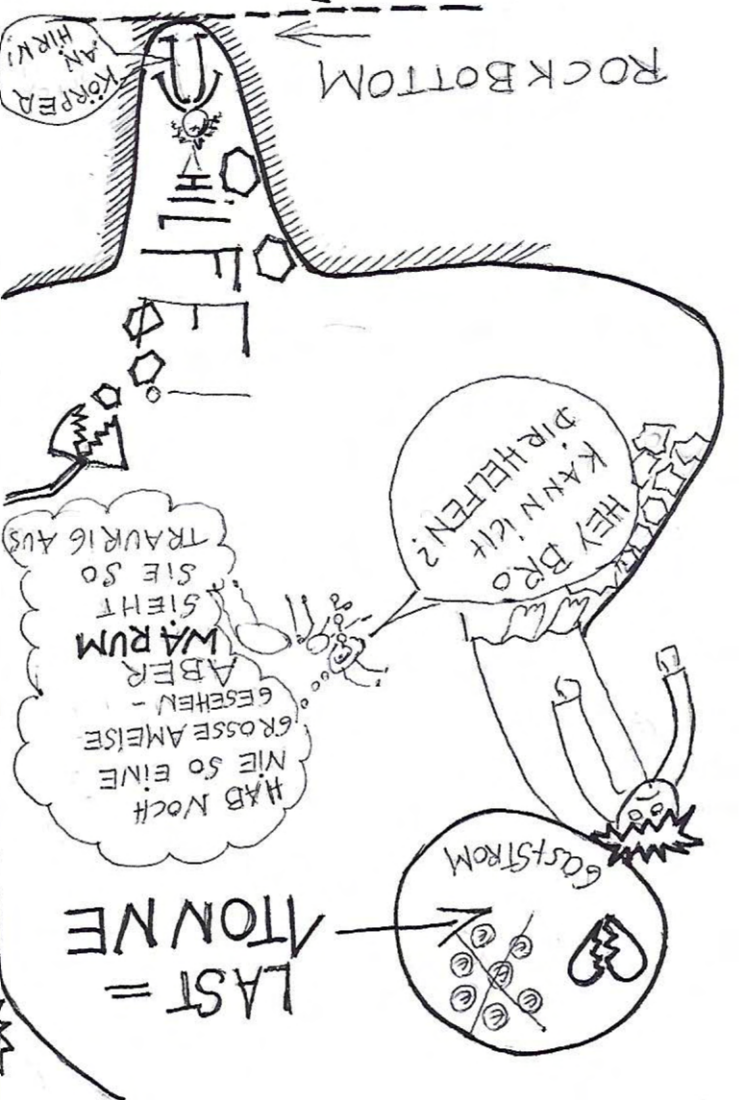 LAST =
1TONNE
Gas+STROM
HAB NOCH
NiE SO EiNE
GROSSE AMEiSE
GESEHEN -
ABER
WARUM
SiEHT
SiE SO
TRAURIG AUS
HEY BRO
KANN iCH
DiR HELFEN?
ROCKBOTTOM
KÖRPER
AN
HIRN!